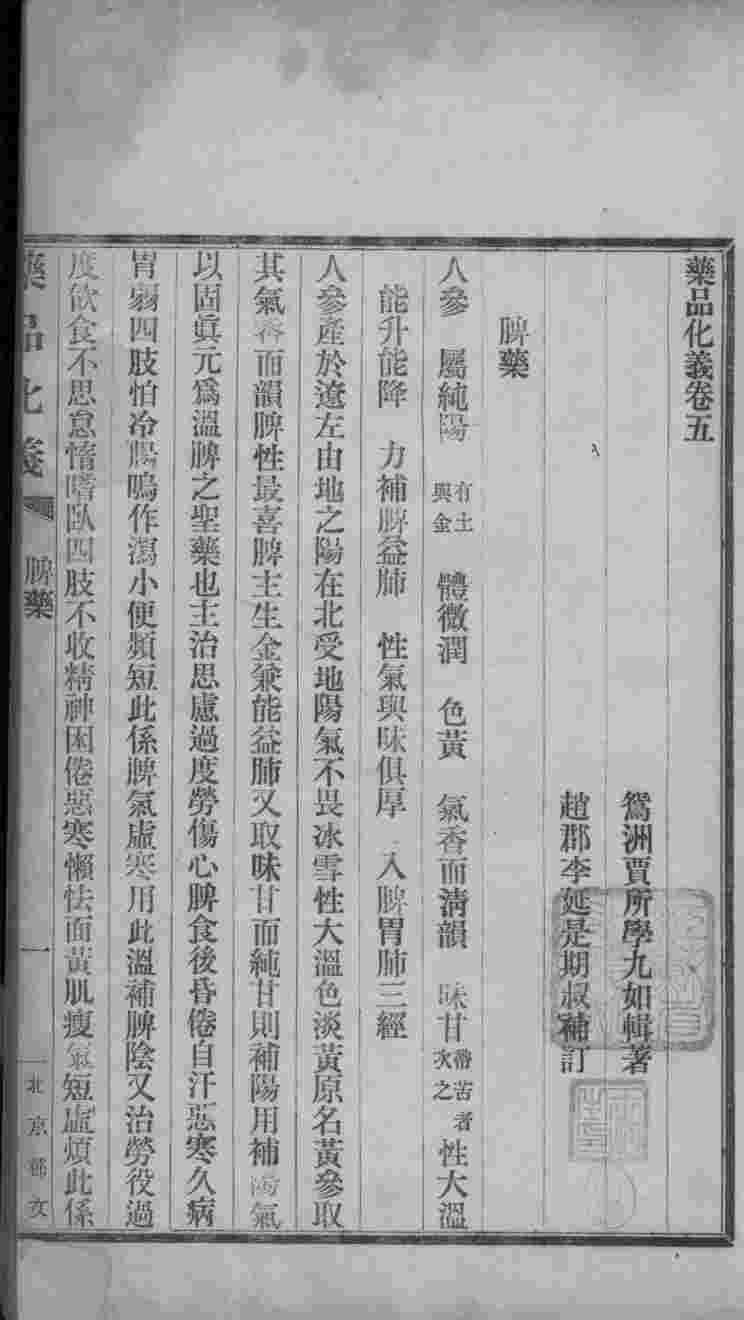 藥品化義卷五
鴛洲賈所學九如輯著
趙郡李延是期叔補訂
脾藥
人參　屬純陽　有土與金　體微潤　色黃　氣香而清韻　味甘　帶苦者次之　性大溫
能升能降　力補脾益肺　性氣與味俱厚　入脾胃肺三經
人參產於遼左由地之陽在北受地陽氣不畏冰雪性大溫色淡黃原名黃參取
其氣香而韻脾性最喜脾主生金兼能益肺又取味甘而純甘則補陽用補陽氣
以固眞元爲溫脾之聖藥也主治思慮過度勞傷心脾食後昏倦自汗惡寒久病
胃弱四肢怕冷腸鳴作瀉小便頻短此係脾氣虛寒用此溫補脾陰又治勞役過
度飲食不思怠惰嗜臥四肢不收精神困倦惡寒懶怯面黃肌瘦氣短虛煩此係
藥品化義　脾藥　一　北京郁文